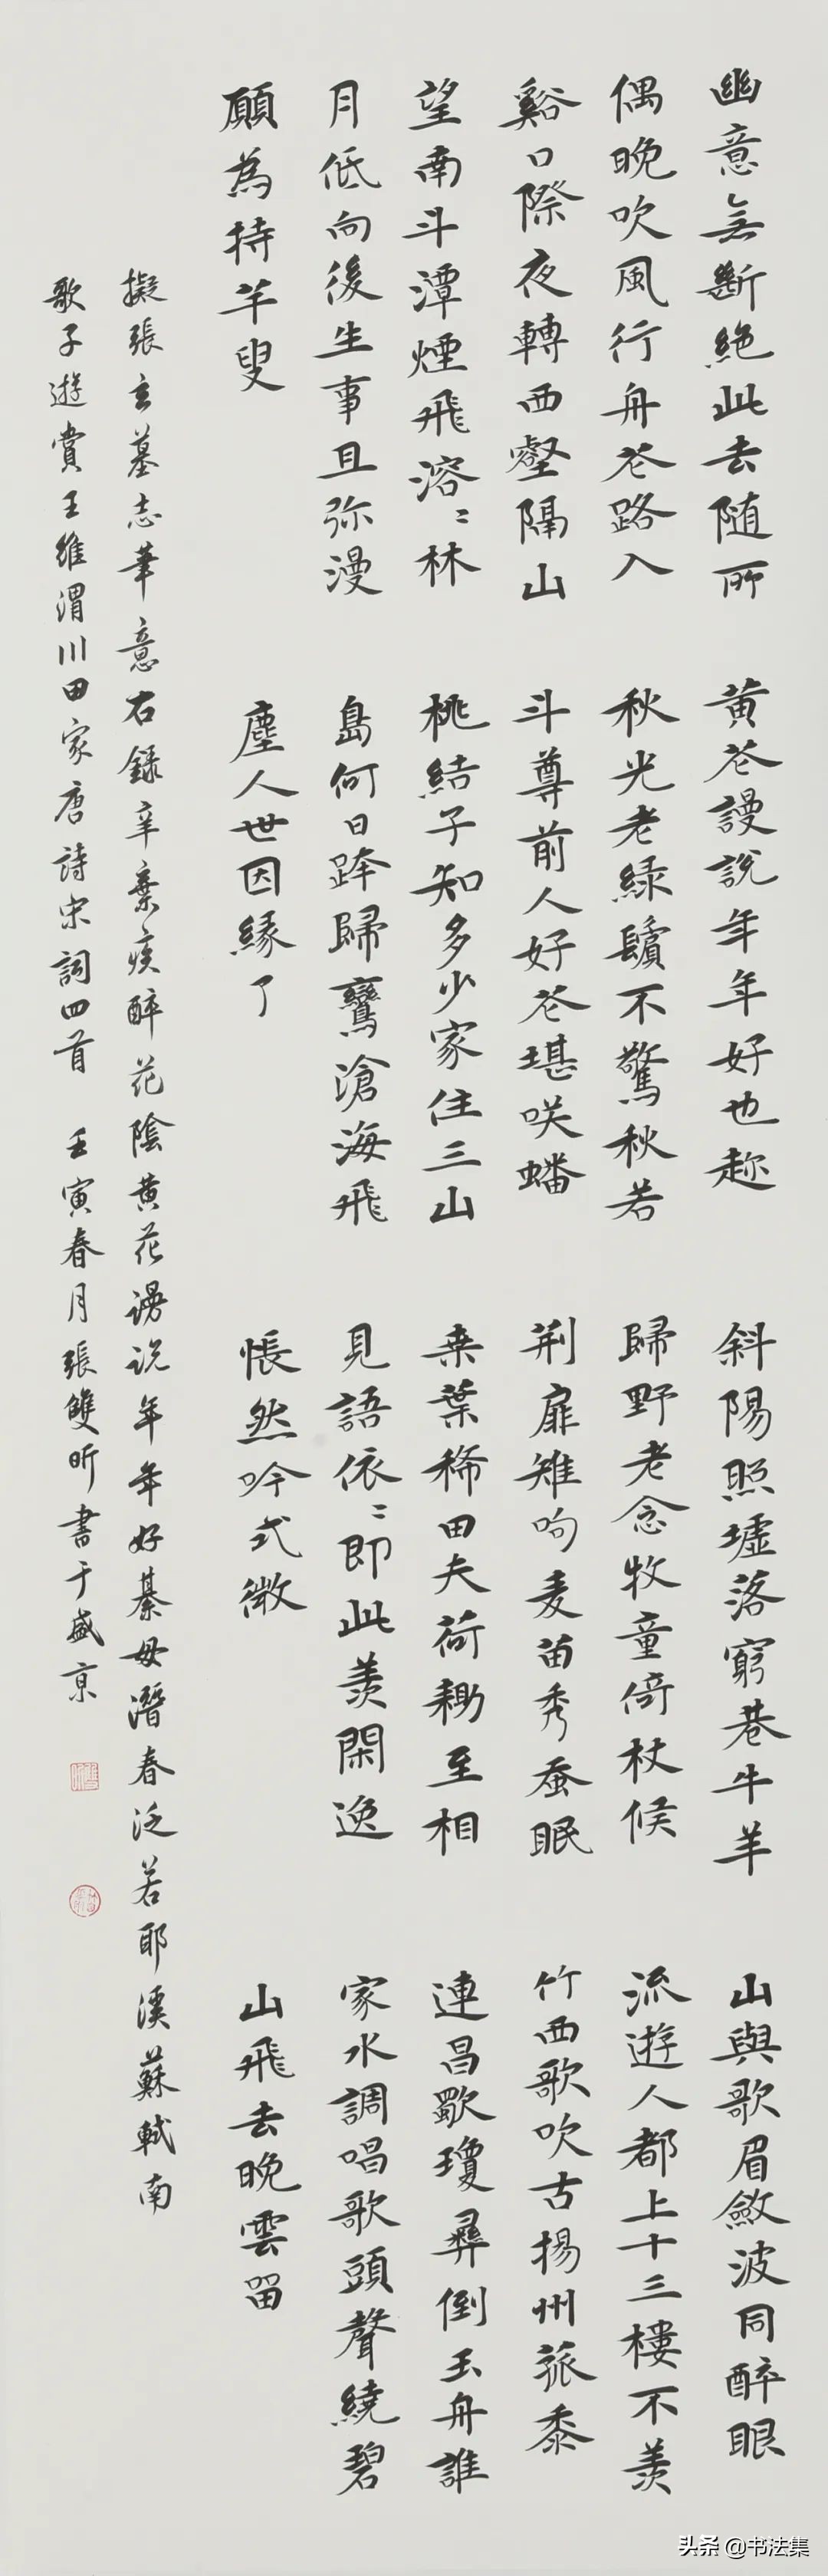 幽意無斷絕此去随所
偶晚吹風行舟花路入
谿口際夜轉西壑隔山
望南斗潭煙飛溶〻林
月低向後生事且弥漫
願為持竿叟
黄花謾說年年好也趂
秋光老緑鬢不驚秋若
斗尊前人好花堪咲蟠
桃結子知多少家住三山
島何日跨歸鸞滄海飛
塵人世因緣了
斜陽照墟落窮巷牛羊
歸野老念牧童倚杖候
荆扉雉呴麦苗秀蚕眠
桒葉稀田夫荷耡至相
見語依〻即此羨閑逸
悵然吟式微
山與歌眉斂波同醉眼
流遊人都上十三樓不羨
竹西歌吹古揚州菰黍
連昌歜瓊彞倒玉舟誰
家水調唱歌頭聲繞碧
山飛去晚雲留
擬張玄墓志筆意右録辛棄疾醉花陰黄花謾说年年好綦毋潛春泛若耶溪蘇軾南
歌子遊賞王維渭川田家唐詩宋詞四首 壬寅春月張雙昕書于盛京
头条 @书法集